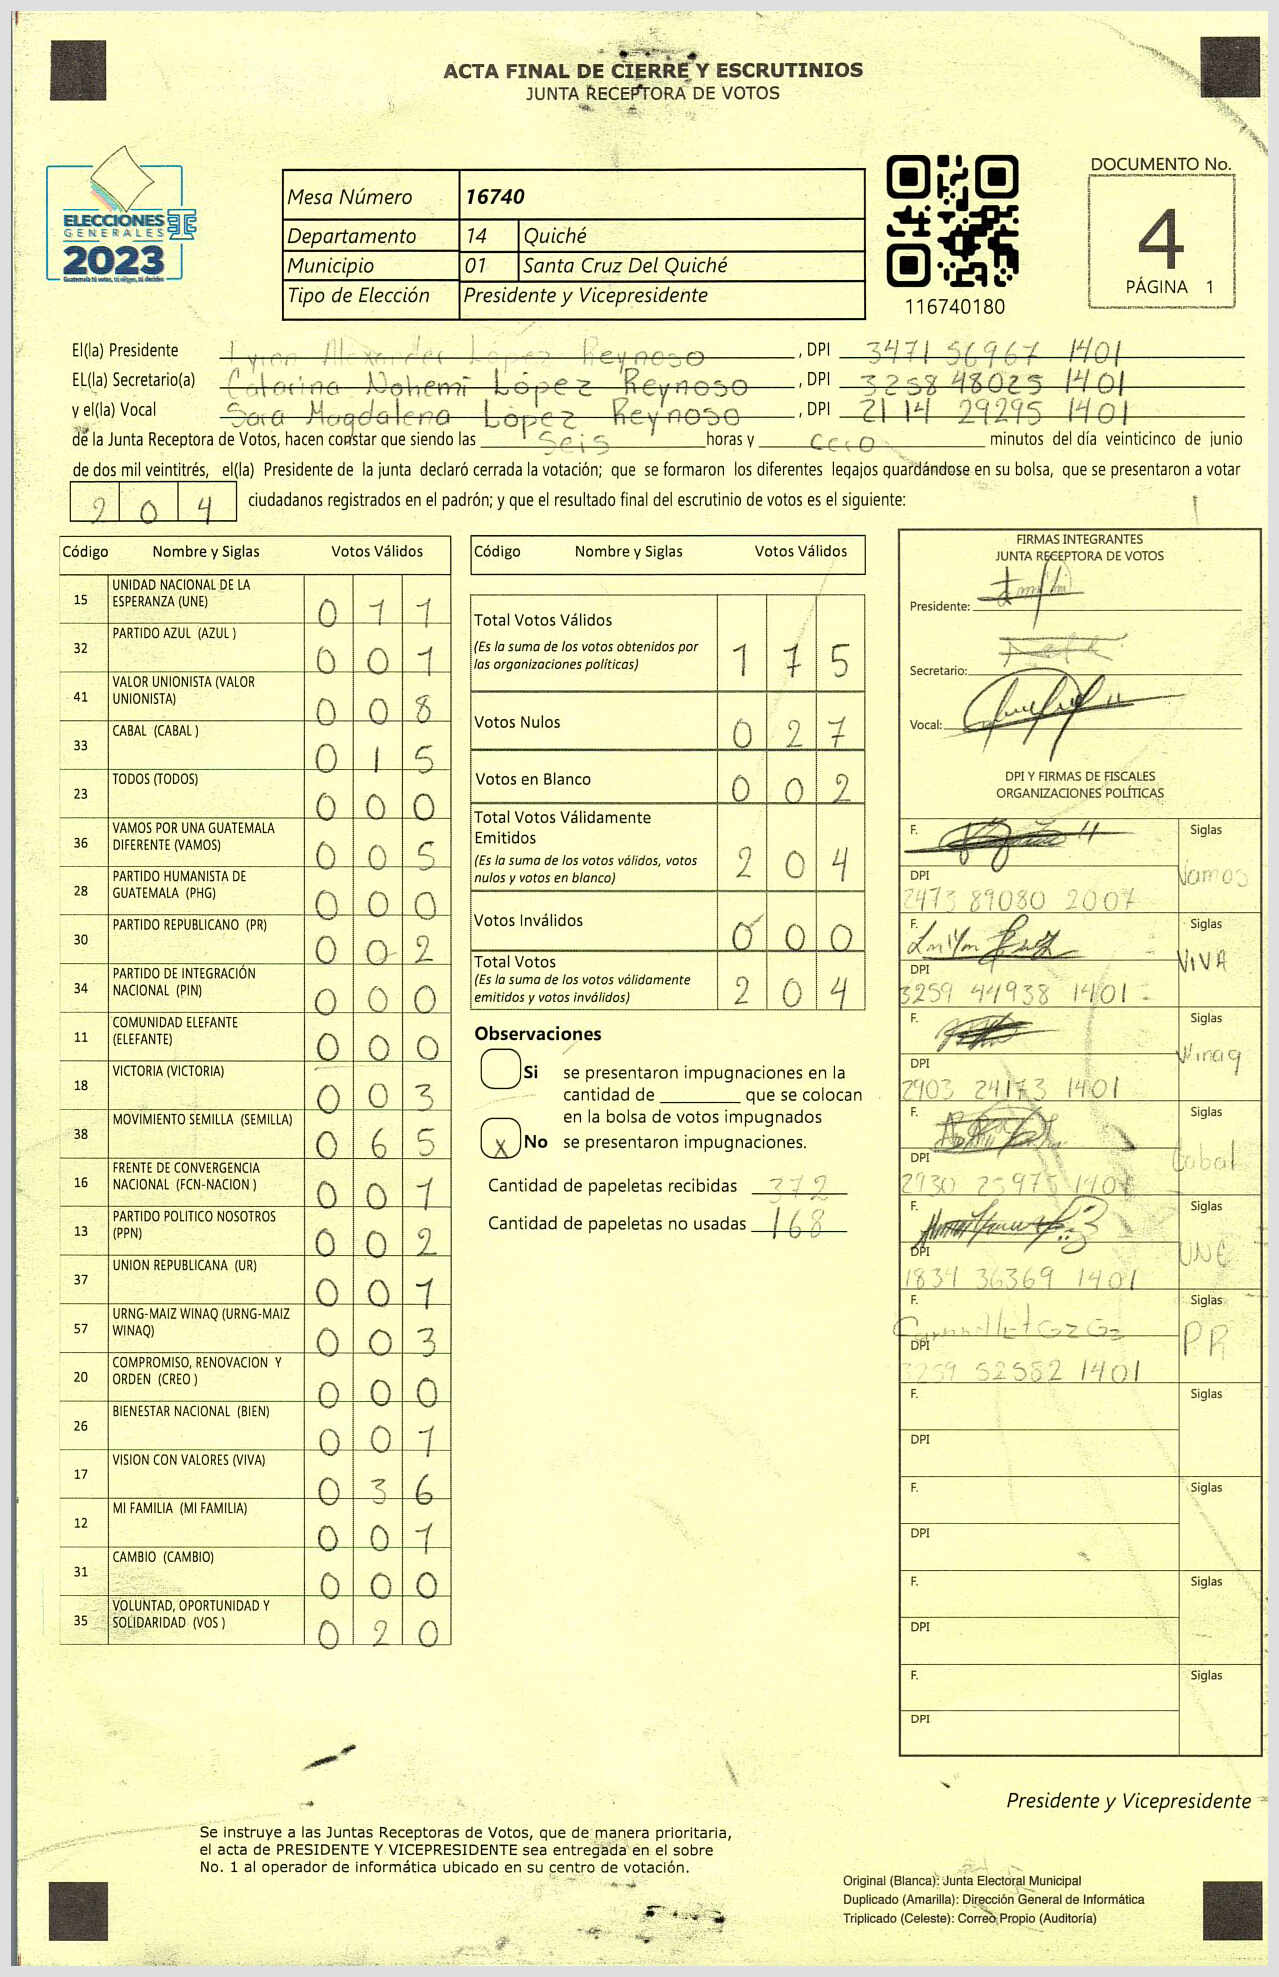 ACTA FINAL DE CIERRE Y ESCRUTINIOS
JUNTA RECEPTORA DE VOTOS
ELECCIONES
GENERALES
2023
Guatemala tú votas, tú eliges, tú decides
Mesa Número 16740
Departamento 14 Quiché
Municipio 01 Santa Cruz Del Quiché
Tipo de Elección Presidente y Vicepresidente
116740180
DOCUMENTO No.
4
PÁGINA 1
El(la) Presidente Alexander López Reynoso , DPI 3471 56967 1401
EL(la) Secretario(a) Catarina Nohemi López Reynoso , DPI 3258 48025 1401
y el(la) Vocal Sara Magdalena López Reynoso , DPI 2114 29295 1401
de la Junta Receptora de Votos, hacen constar que siendo las seis horas y cero minutos del día veinticinco de junio
de dos mil veintitrés, el(la) Presidente de la junta declaró cerrada la votación; que se formaron los diferentes legajos guardándose en su bolsa, que se presentaron a votar
204 ciudadanos registrados en el padrón; y que el resultado final del escrutinio de votos es el siguiente:
Código Nombre y Siglas Votos Válidos
15 UNIDAD NACIONAL DE LA ESPERANZA (UNE) 011
32 PARTIDO AZUL (AZUL ) 001
41 VALOR UNIONISTA (VALOR UNIONISTA) 008
33 CABAL (CABAL ) 015
23 TODOS (TODOS) 000
36 VAMOS POR UNA GUATEMALA DIFERENTE (VAMOS) 005
28 PARTIDO HUMANISTA DE GUATEMALA (PHG) 000
30 PARTIDO REPUBLICANO (PR) 002
34 PARTIDO DE INTEGRACIÓN NACIONAL (PIN) 000
11 COMUNIDAD ELEFANTE (ELEFANTE) 000
18 VICTORIA (VICTORIA) 003
38 MOVIMIENTO SEMILLA (SEMILLA) 065
16 FRENTE DE CONVERGENCIA NACIONAL (FCN-NACION ) 001
13 PARTIDO POLITICO NOSOTROS (PPN) 002
37 UNION REPUBLICANA (UR) 001
57 URNG-MAIZ WINAQ (URNG-MAIZ WINAQ) 003
20 COMPROMISO, RENOVACION Y ORDEN (CREO ) 000
26 BIENESTAR NACIONAL (BIEN) 001
17 VISION CON VALORES (VIVA) 036
12 MI FAMILIA (MI FAMILIA) 001
31 CAMBIO (CAMBIO) 000
35 VOLUNTAD, OPORTUNIDAD Y SOLIDARIDAD (VOS ) 020
Código Nombre y Siglas Votos Válidos
Total Votos Válidos
(Es la suma de los votos obtenidos por
las organizaciones políticas) 175
Votos Nulos 027
Votos en Blanco 002
Total Votos Válidamente
Emitidos
(Es la suma de los votos válidos, votos
nulos y votos en blanco) 204
Votos Inválidos 000
Total Votos
(Es la suma de los votos válidamente
emitidos y votos inválidos) 204
Observaciones
Si se presentaron impugnaciones en la
cantidad de ________ que se colocan
en la bolsa de votos impugnados
X No se presentaron impugnaciones.
Cantidad de papeletas recibidas 372
Cantidad de papeletas no usadas 168
FIRMAS INTEGRANTES
JUNTA RECEPTORA DE VOTOS
Presidente:
Secretario:
Vocal:
DPI Y FIRMAS DE FISCALES
ORGANIZACIONES POLÍTICAS
F. Siglas
DPI Vamos
2473 89080 2007
F. Siglas
DPI VIVA
3259 44938 1401
F. Siglas
DPI Winaq
2903 24173 1401
F. Siglas
DPI Cabal
2930 25975 1401
F. Siglas
DPI UNE
1834 36369 1401
F. Siglas
DPI PR
3259 52582 1401
F. Siglas
DPI
F. Siglas
DPI
F. Siglas
DPI
F. Siglas
DPI
Presidente y Vicepresidente
Se instruye a las Juntas Receptoras de Votos, que de manera prioritaria,
el acta de PRESIDENTE Y VICEPRESIDENTE sea entregada en el sobre
No. 1 al operador de informática ubicado en su centro de votación.
Original (Blanca): Junta Electoral Municipal
Duplicado (Amarilla): Dirección General de Informática
Triplicado (Celeste): Correo Propio (Auditoría)